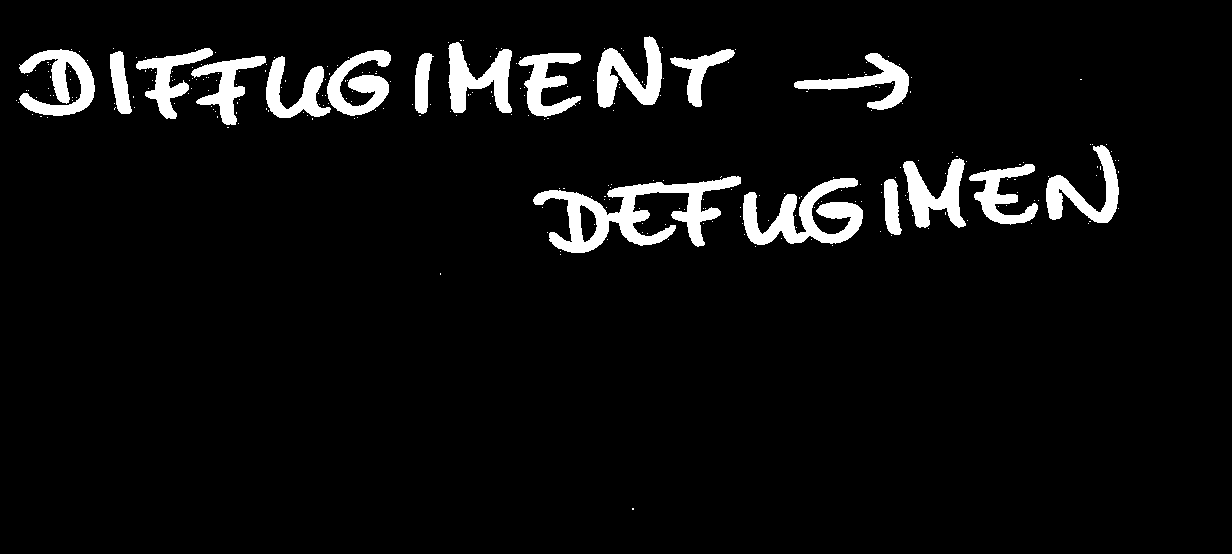 DIFFUGIMENT →
DEFUGIMEN